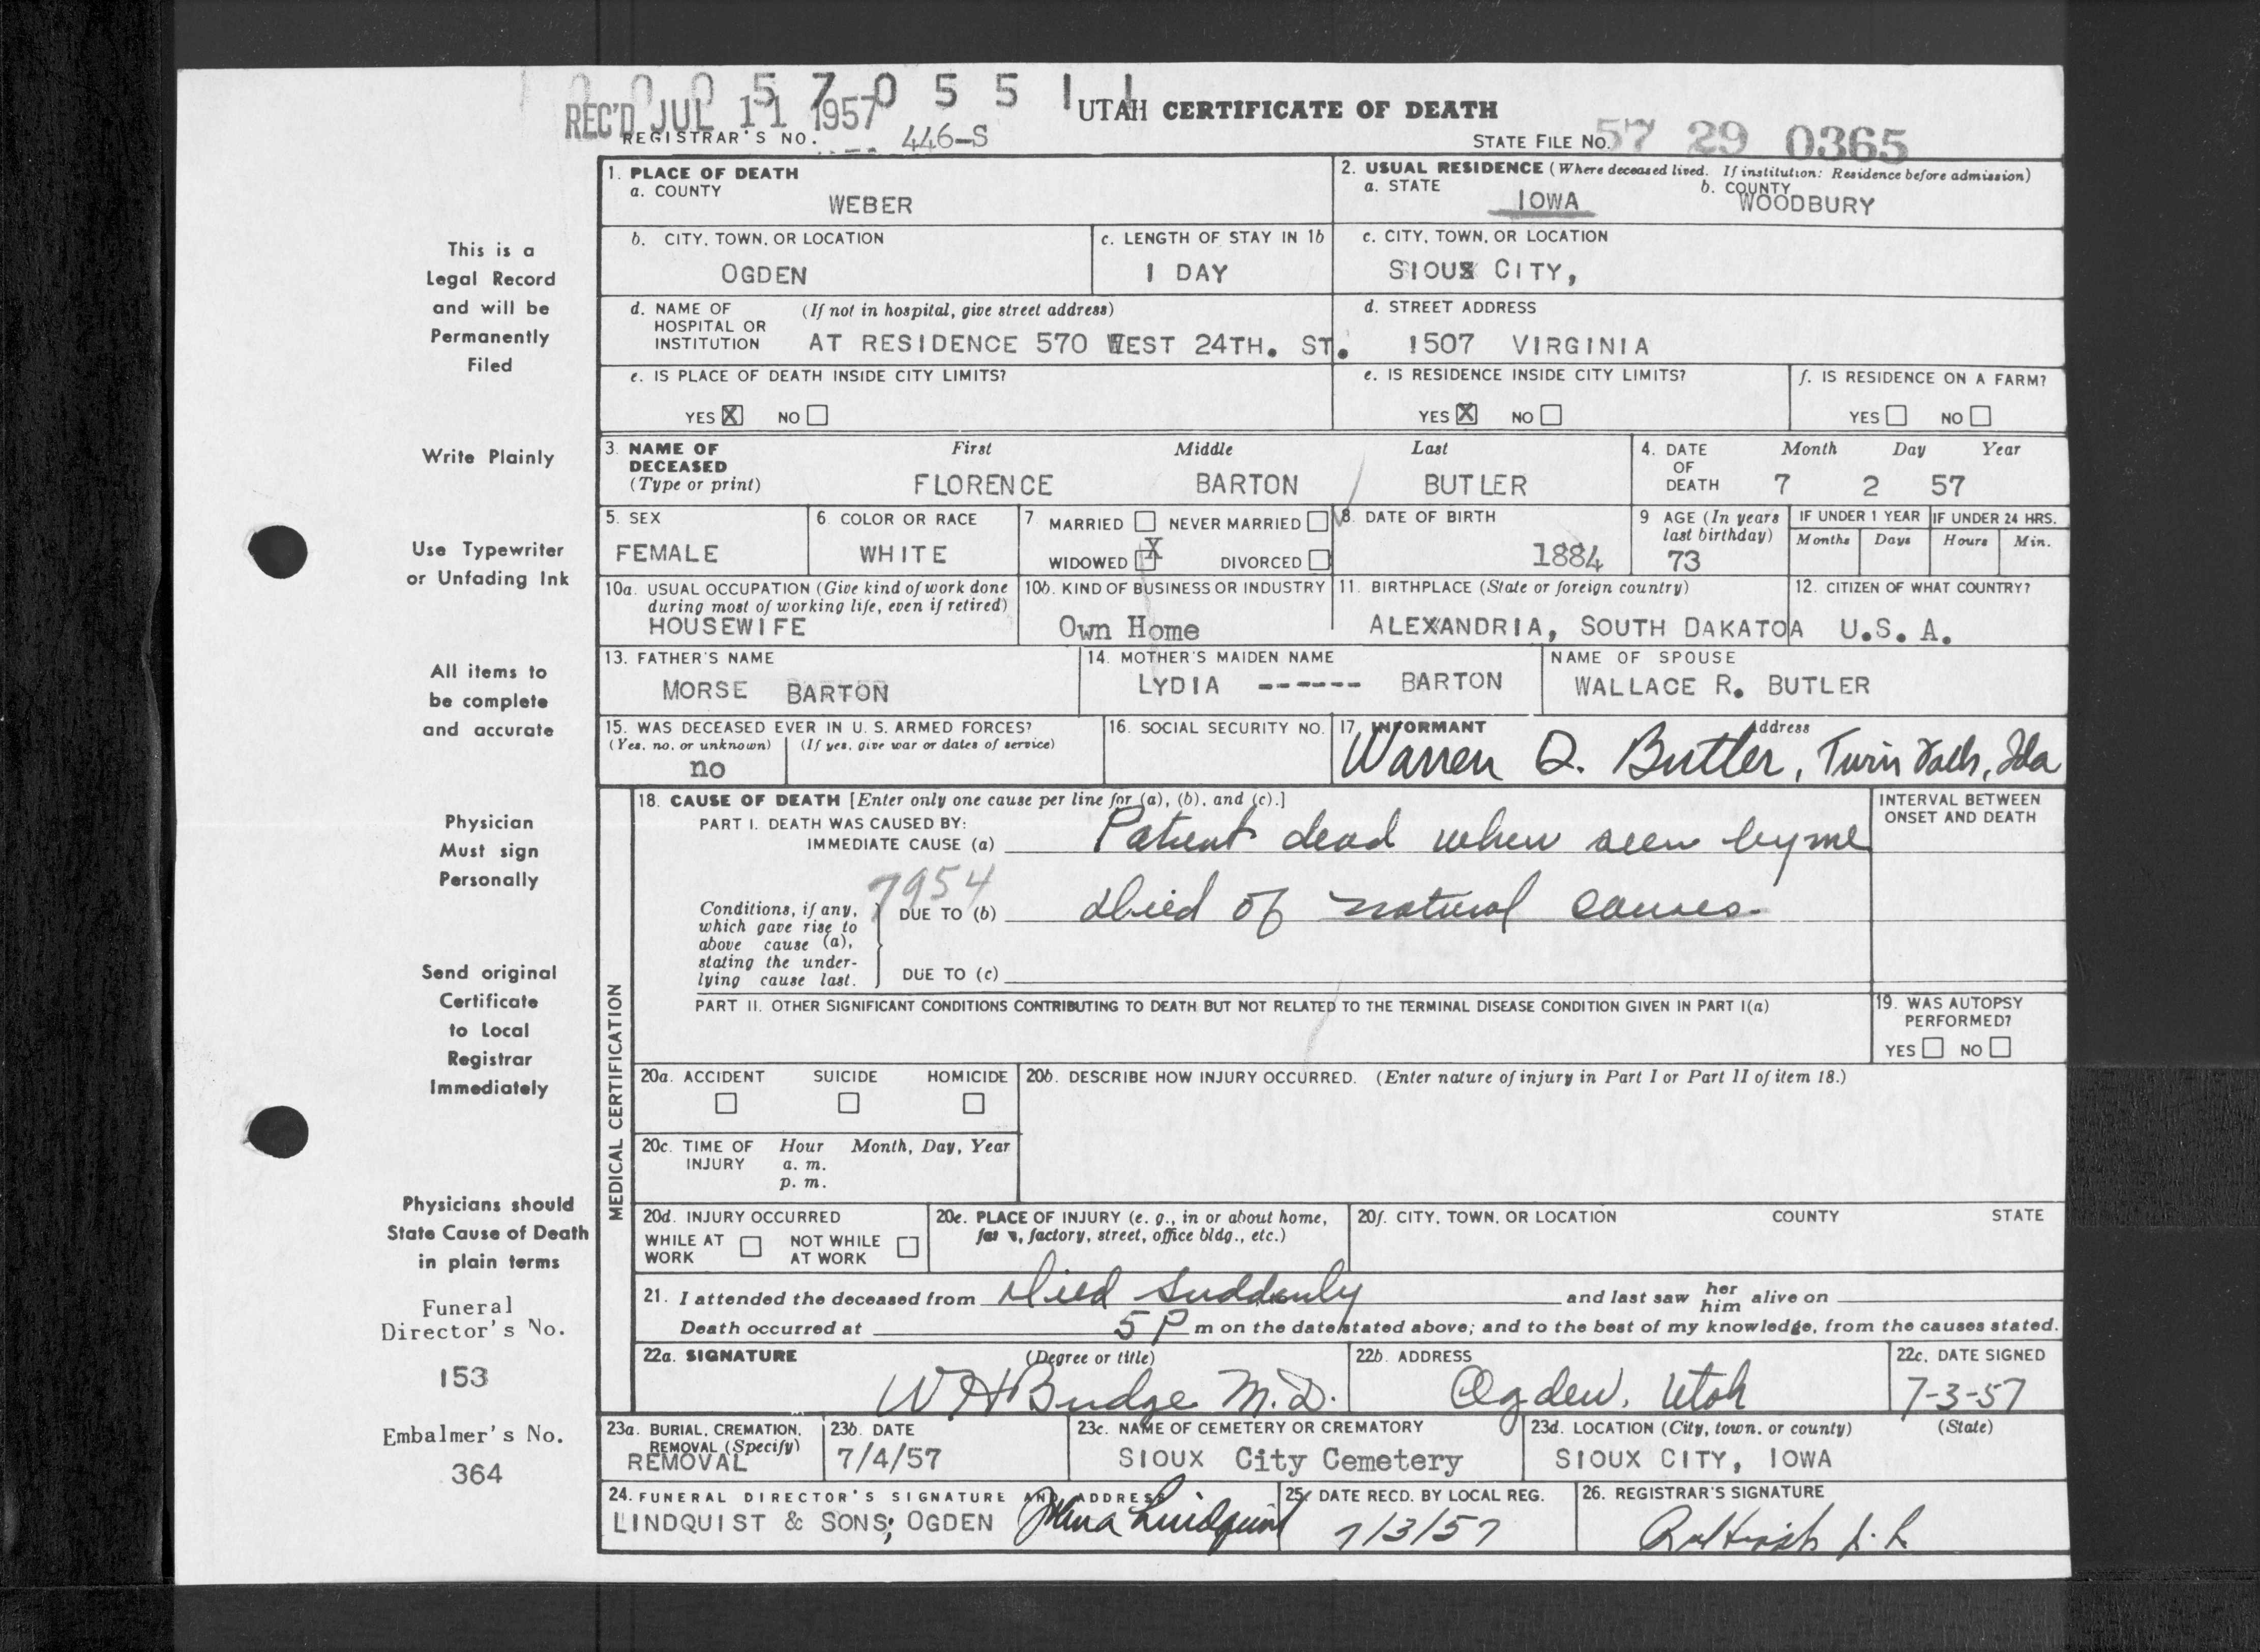 0 0 0 5 7 0 5 5 1 1
REC'D JUL 11 1957
UTAH CERTIFICATE OF DEATH
REGISTRAR'S NO. 446-S
STATE FILE NO. 57 29 0365
1. PLACE OF DEATH
a. COUNTY
WEBER
2. USUAL RESIDENCE (Where deceased lived. If institution: Residence before admission)
a. STATE b. COUNTY
IOWA WOODBURY
b. CITY, TOWN, OR LOCATION
OGDEN
c. LENGTH OF STAY IN 1b
1 DAY
c. CITY, TOWN, OR LOCATION
SIOUX CITY,
d. NAME OF HOSPITAL OR INSTITUTION (If not in hospital, give street address)
AT RESIDENCE 570 WEST 24TH. ST.
d. STREET ADDRESS
1507 VIRGINIA
e. IS PLACE OF DEATH INSIDE CITY LIMITS?
YES X NO
e. IS RESIDENCE INSIDE CITY LIMITS?
YES X NO
f. IS RESIDENCE ON A FARM?
YES NO
3. NAME OF DECEASED (Type or print)
First Middle Last
FLORENCE BARTON BUTLER
4. DATE OF DEATH
Month Day Year
7 2 57
5. SEX
FEMALE
6. COLOR OR RACE
WHITE
7. MARRIED NEVER MARRIED
WIDOWED X DIVORCED
8. DATE OF BIRTH
1884
9 AGE (In years last birthday)
73
IF UNDER 1 YEAR
Months Days
IF UNDER 24 HRS.
Hours Min.
10a. USUAL OCCUPATION (Give kind of work done during most of working life, even if retired)
HOUSEWIFE
10b. KIND OF BUSINESS OR INDUSTRY
Own Home
11. BIRTHPLACE (State or foreign country)
ALEXANDRIA, SOUTH DAKATOA
12. CITIZEN OF WHAT COUNTRY?
U.S. A.
13. FATHER'S NAME
MORSE BARTON
14. MOTHER'S MAIDEN NAME
LYDIA ------ BARTON
NAME OF SPOUSE
WALLACE R. BUTLER
15. WAS DECEASED EVER IN U. S. ARMED FORCES?
(Yes, no, or unknown) (If yes, give war or dates of service)
no
16. SOCIAL SECURITY NO.
17. INFORMANT Address
Warren Q. Butler, Twin Falls, Ida
18. CAUSE OF DEATH [Enter only one cause per line for (a), (b), and (c).]
PART I. DEATH WAS CAUSED BY:
IMMEDIATE CAUSE (a) Patient dead when seen by me
7954
Conditions, if any, which gave rise to above cause (a), stating the underlying cause last.
DUE TO (b) Died of natural causes
DUE TO (c)
INTERVAL BETWEEN ONSET AND DEATH
PART II. OTHER SIGNIFICANT CONDITIONS CONTRIBUTING TO DEATH BUT NOT RELATED TO THE TERMINAL DISEASE CONDITION GIVEN IN PART I(a)
19. WAS AUTOPSY PERFORMED?
YES NO
MEDICAL CERTIFICATION
20a. ACCIDENT SUICIDE HOMICIDE
20b. DESCRIBE HOW INJURY OCCURRED. (Enter nature of injury in Part I or Part II of item 18.)
20c. TIME OF INJURY Hour Month, Day, Year
a. m.
p. m.
20d. INJURY OCCURRED
WHILE AT WORK NOT WHILE AT WORK
20e. PLACE OF INJURY (e. g., in or about home, factory, street, office bldg., etc.)
20f. CITY, TOWN, OR LOCATION COUNTY STATE
21. I attended the deceased from Died suddenly and last saw her him alive on
Death occurred at 5 P m on the date stated above; and to the best of my knowledge, from the causes stated.
22a. SIGNATURE (Degree or title)
W H Budge M.D.
22b. ADDRESS
Ogden, Utah
22c. DATE SIGNED
7-3-57
23a. BURIAL, CREMATION, REMOVAL (Specify)
REMOVAL
23b. DATE
7/4/57
23c. NAME OF CEMETERY OR CREMATORY
SIOUX City Cemetery
23d. LOCATION (City, town, or county) (State)
SIOUX CITY, IOWA
24. FUNERAL DIRECTOR'S SIGNATURE AND ADDRESS
LINDQUIST & SONS; OGDEN Lindquist
25. DATE RECD. BY LOCAL REG.
7/3/57
26. REGISTRAR'S SIGNATURE
This is a
Legal Record
and will be
Permanently
Filed
Write Plainly
Use Typewriter
or Unfading Ink
All items to
be complete
and accurate
Physician
Must sign
Personally
Send original
Certificate
to Local
Registrar
Immediately
Physicians should
State Cause of Death
in plain terms
Funeral
Director's No.
153
Embalmer's No.
364